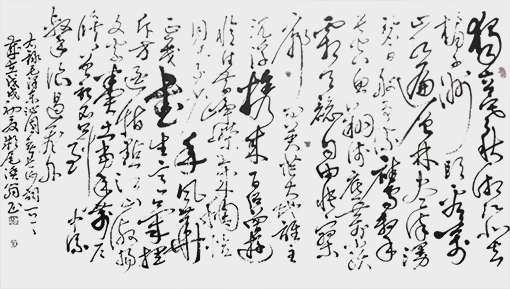 独立寒秋湘江北去
橘子洲头看万
山红遍层林尽染漫
江碧透百舸争流鹰击长
空鱼翔浅底万类
霜天竞自由怅寥
廓问苍茫大地谁主
沉浮携来百侣曾游
忆往昔峥嵘岁月稠恰
同学少年风华
正茂书生意气挥
斥方遒指点江山激扬
文字粪土当年万户
侯曾记否到中流
击水浪遏飞舟
毛泽东沁园春长沙词一首